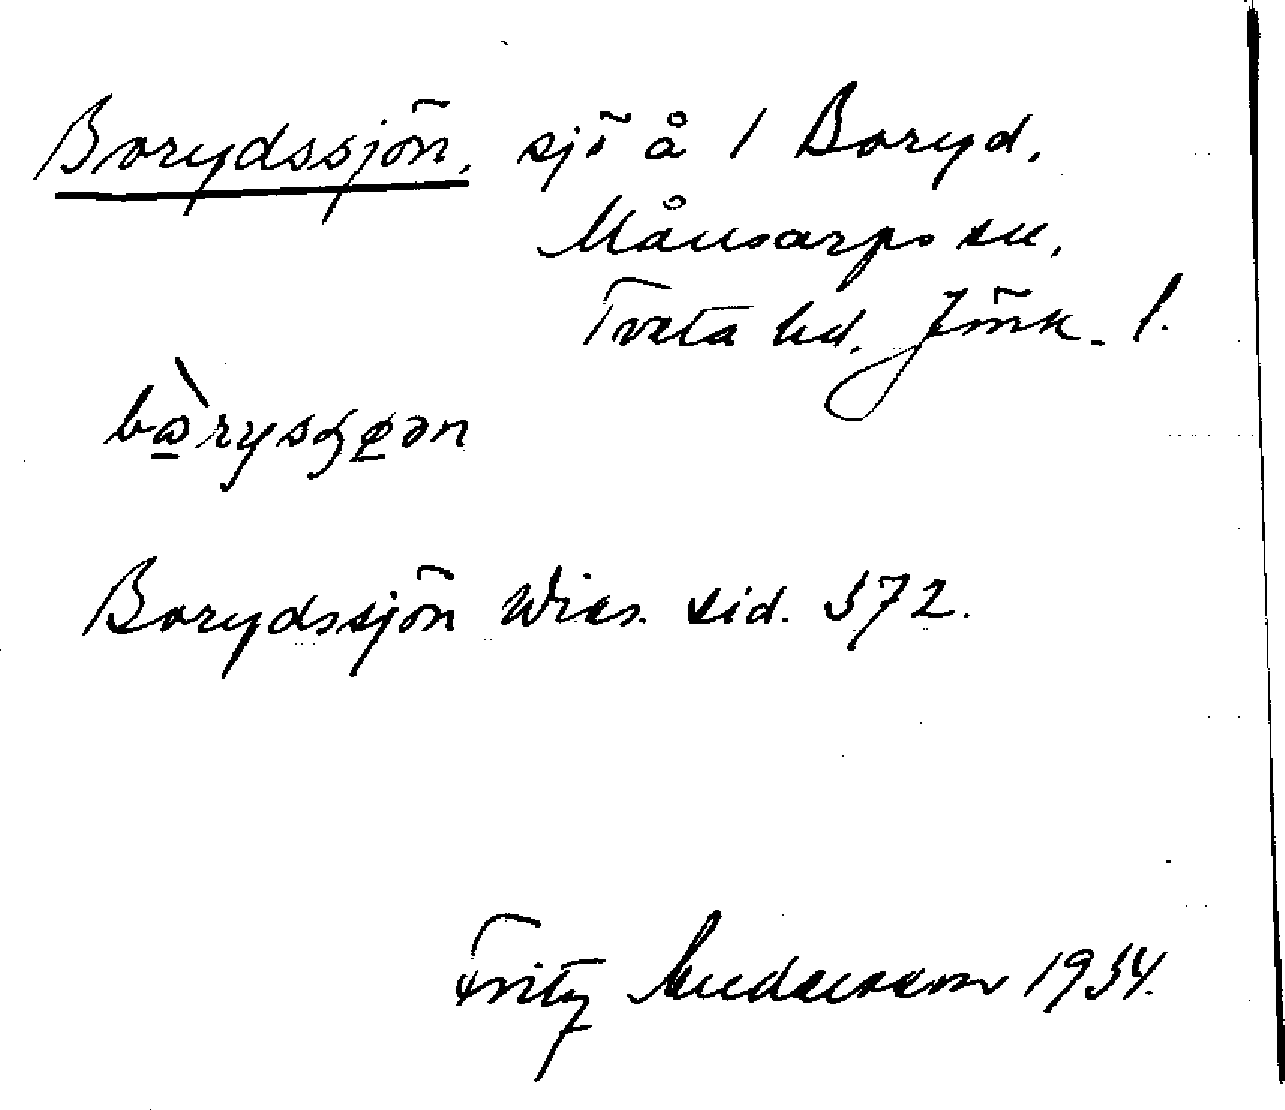 Borydssjön, sjö å 1 Boryd,
Månsarps sn,
Tveta hd. Jönk. l.
Borydssjön Wies. sid. 372.
Fritz Andersson 1934.